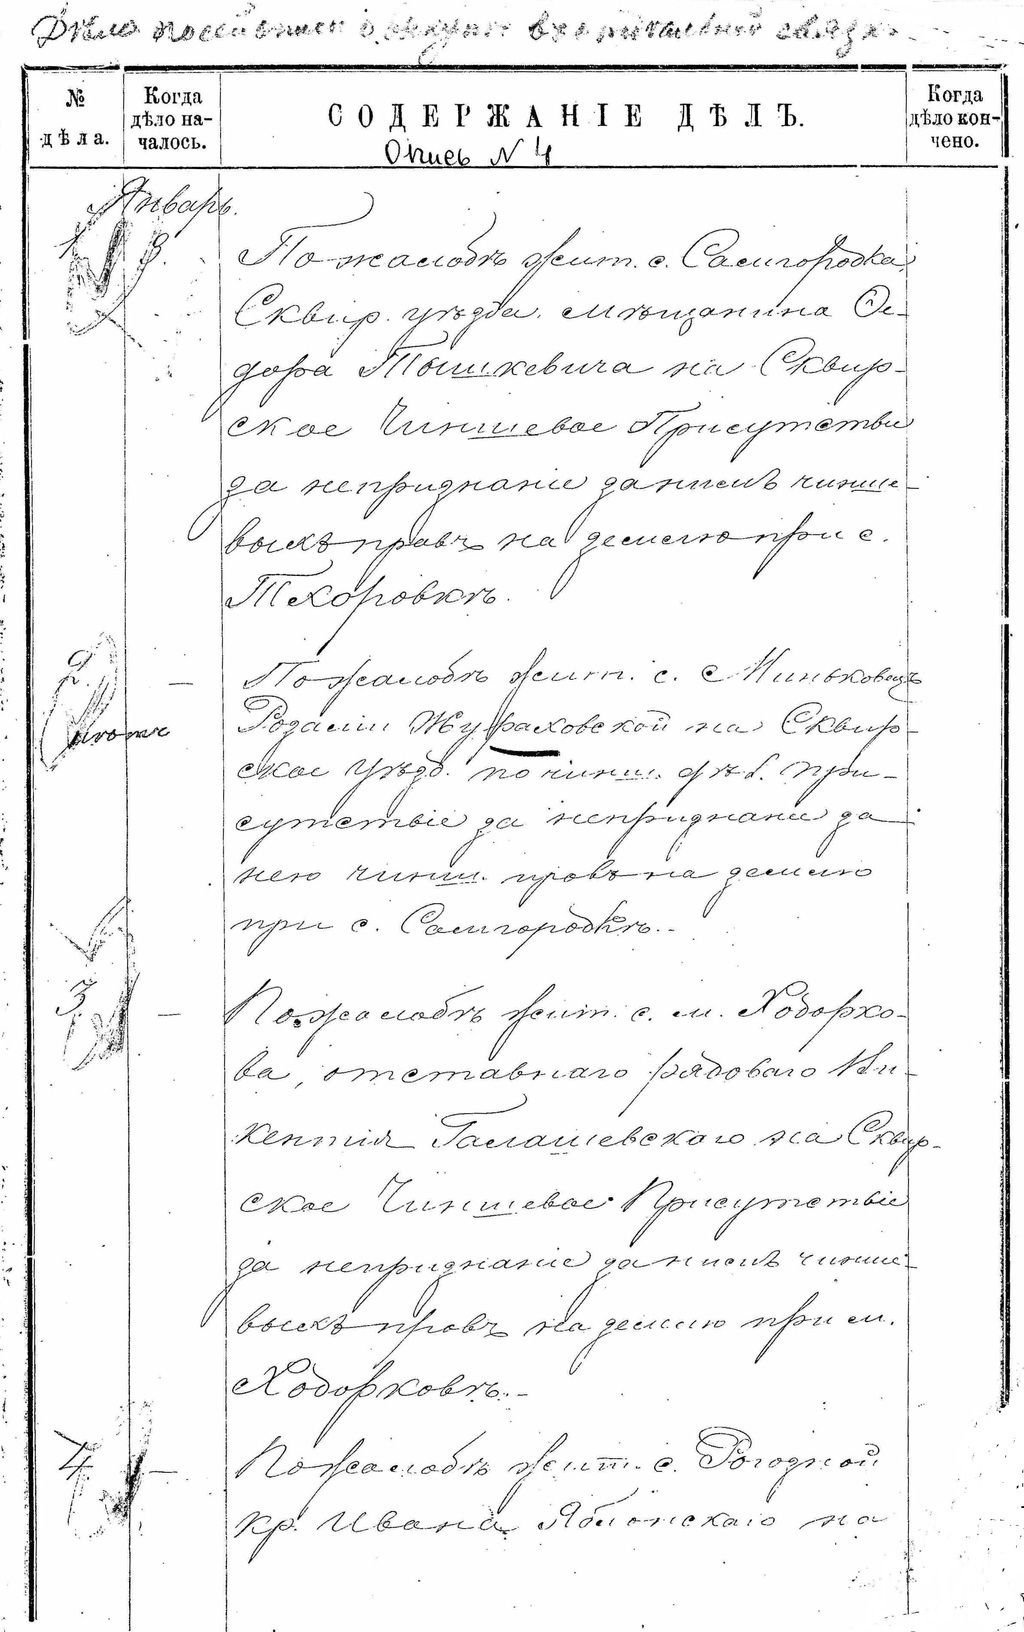 Дѣло
№ дѣла.
Когда дѣло началось.
СОДЕРЖАНІЕ ДѢЛЪ.
Когда дѣло кончено.
Опись N 4
Январь.
1 8. По жалобѣ жит. с. Самгородка,
Сквир. уѣзда. мѣщанина Фе-
дора Тышкевича на Сквир-
ское Чиншевое Присутствіе
за непризнаніе за нимъ чинше-
выхъ правъ на землю при с.
Тхоровкѣ.
2. — По жалобѣ жит. с. Миньковецъ
Розаліи Жураховской на Сквир-
ское Уѣзд. по чинш. дѣл. при-
сутствіе за непризнаніе за
нею чинш. правъ на землю
при с. Самгородкѣ.-
3. — По жалобѣ жит. с. м. Ходорко-
ва, отставнаго рядоваго Ви-
кентія Галашевскаго на Сквир-
ское Чиншевое Присутствіе
за непризнаніе за нимъ чинше-
выхъ правъ на землю при м.
Ходорковѣ.-
4. — По жалобѣ жит. с. Рогозной
кр. Ивана Яблонскаго на